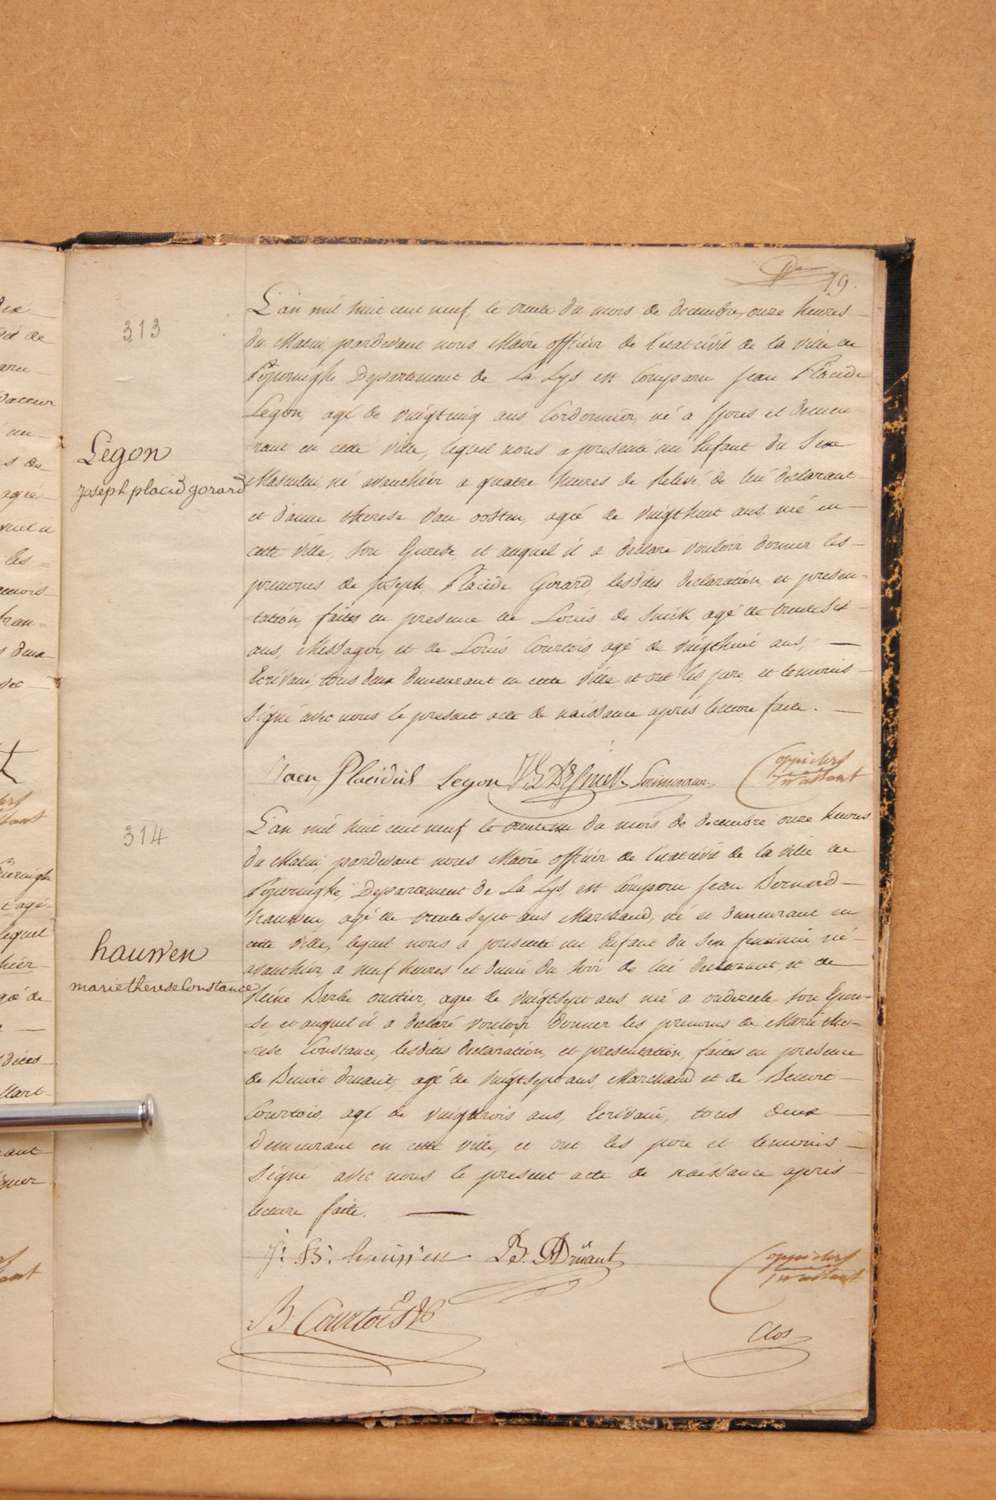 79.
313
Legon
joseph placid gerard
L'an mil huit cent neuf, le trente du mois de decembre, onze heures
du Matin, pardevant nous Maire officier de l'etat civil de la ville de
Poperinghe Departement de La Lys est Comparu Jean Placide
Legon, agé de vingt cinq ans, Cordonnier, né a Ypres et demeu
rant en cette ville, lequel nous a presenté un Enfant du Sexe
Masculin, né avanthier a quatre heures de Relevé de lui declarant
et d'anne therese van oosten, agée de vingthuit ans, née en
cette ville, son Epouse, et auquel il a declare vouloir donner les
prenoms de Joseph, Placide Gerard, lesdites declaration et presen-
tation, faites en presence de Louis de Snick agé de trente Six
ans, Messager, et de Louis Courtois agé de vingthuit ans,
Ecrivain tous deux demeurant en cette ville et ont les pere, et temoins
Signé avec nous le present acte de naissance apres lecture faite.
Jaen Placidus Legon
314
hauwen
marie therese Constance
L'an mil huit cent neuf le trente du mois de decembre onze heures
du Matin, pardevant nous Maire officier de l'etat civil de la ville de
Poperinghe, Departement de La Lys, est Comparu Jean Bernard
hauwen, agé de trente sept ans Marchand, né et demeurant en
cette ville, lequel nous a presenté un Enfant du Sexe feminin né
avanthier a neuf heures et demie du Soir de lui declarant, et de
Reine Barbe outtier, agée de vingtsept ans né a son Epou-
se et auquel il a declaré vouloir donner les prenoms de Marie the-
rese Constance, lesdites declaration, et presentation, faites en presence
de Benoit druant, agé de vingtsept ans, Marchand et de Benoit
Courtois agé de vingttrois ans, Ecrivain, tous deux
demeurant en cette ville, et ont les pere et temoins
Signé avec nous le present acte de naissance apres
lecture faite.
J: B: hauwen B. Druant
B Courtois
Clos